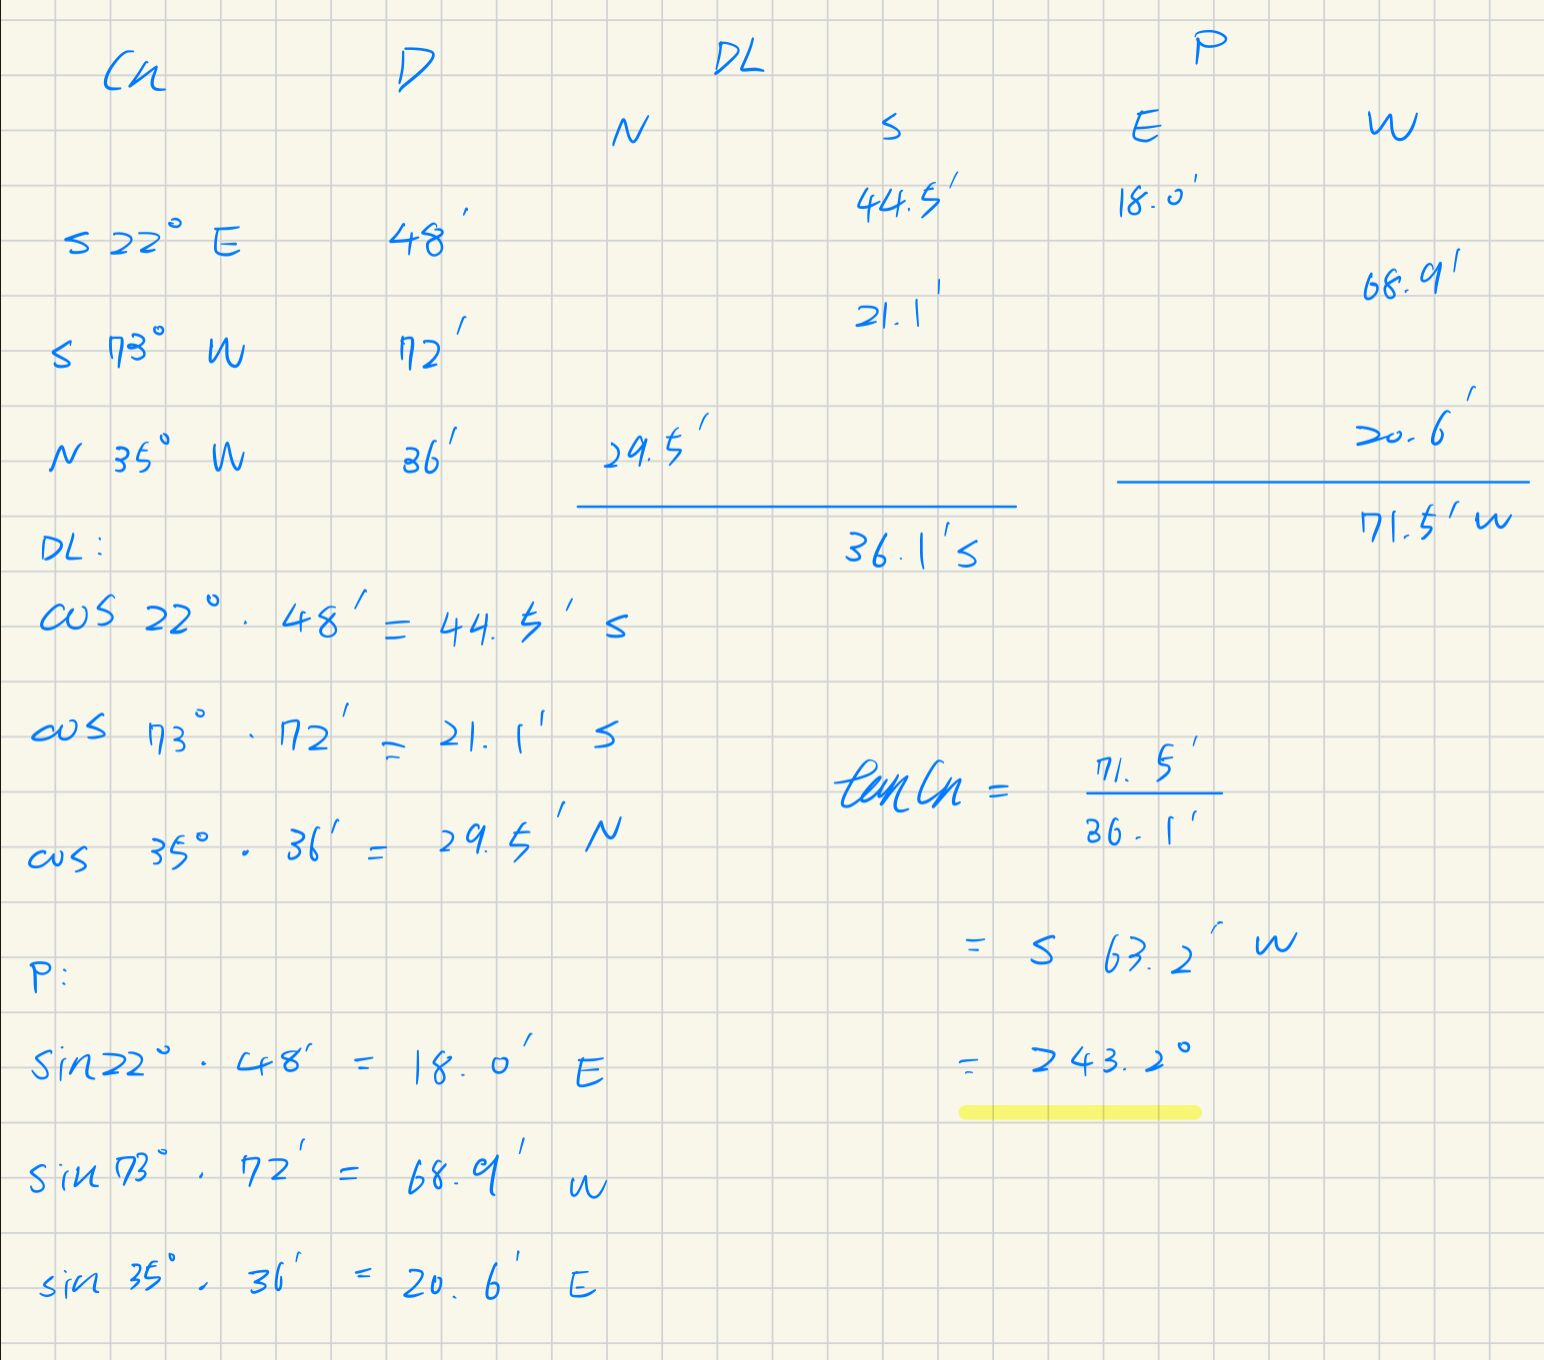 Cn D DL P
N S E W
44.5′ 18.0′
S 22° E 48′
68.9′
21.1′
S 73° W 72′
20.6′
N 35° W 36′ 29.5′
36.1′S 71.5′W
DL:
cos 22° · 48′ = 44.5′ S
cos 73° · 72′ = 21.1′ S
cos 35° · 36′ = 29.5′ N
P:
sin22° · 48′ = 18.0′ E
sin 73° · 72′ = 68.9′ W
sin 35° · 36′ = 20.6′ E
tan Cn = 71.5′ / 36.1′
= S 63.2′ W
= 243.2°